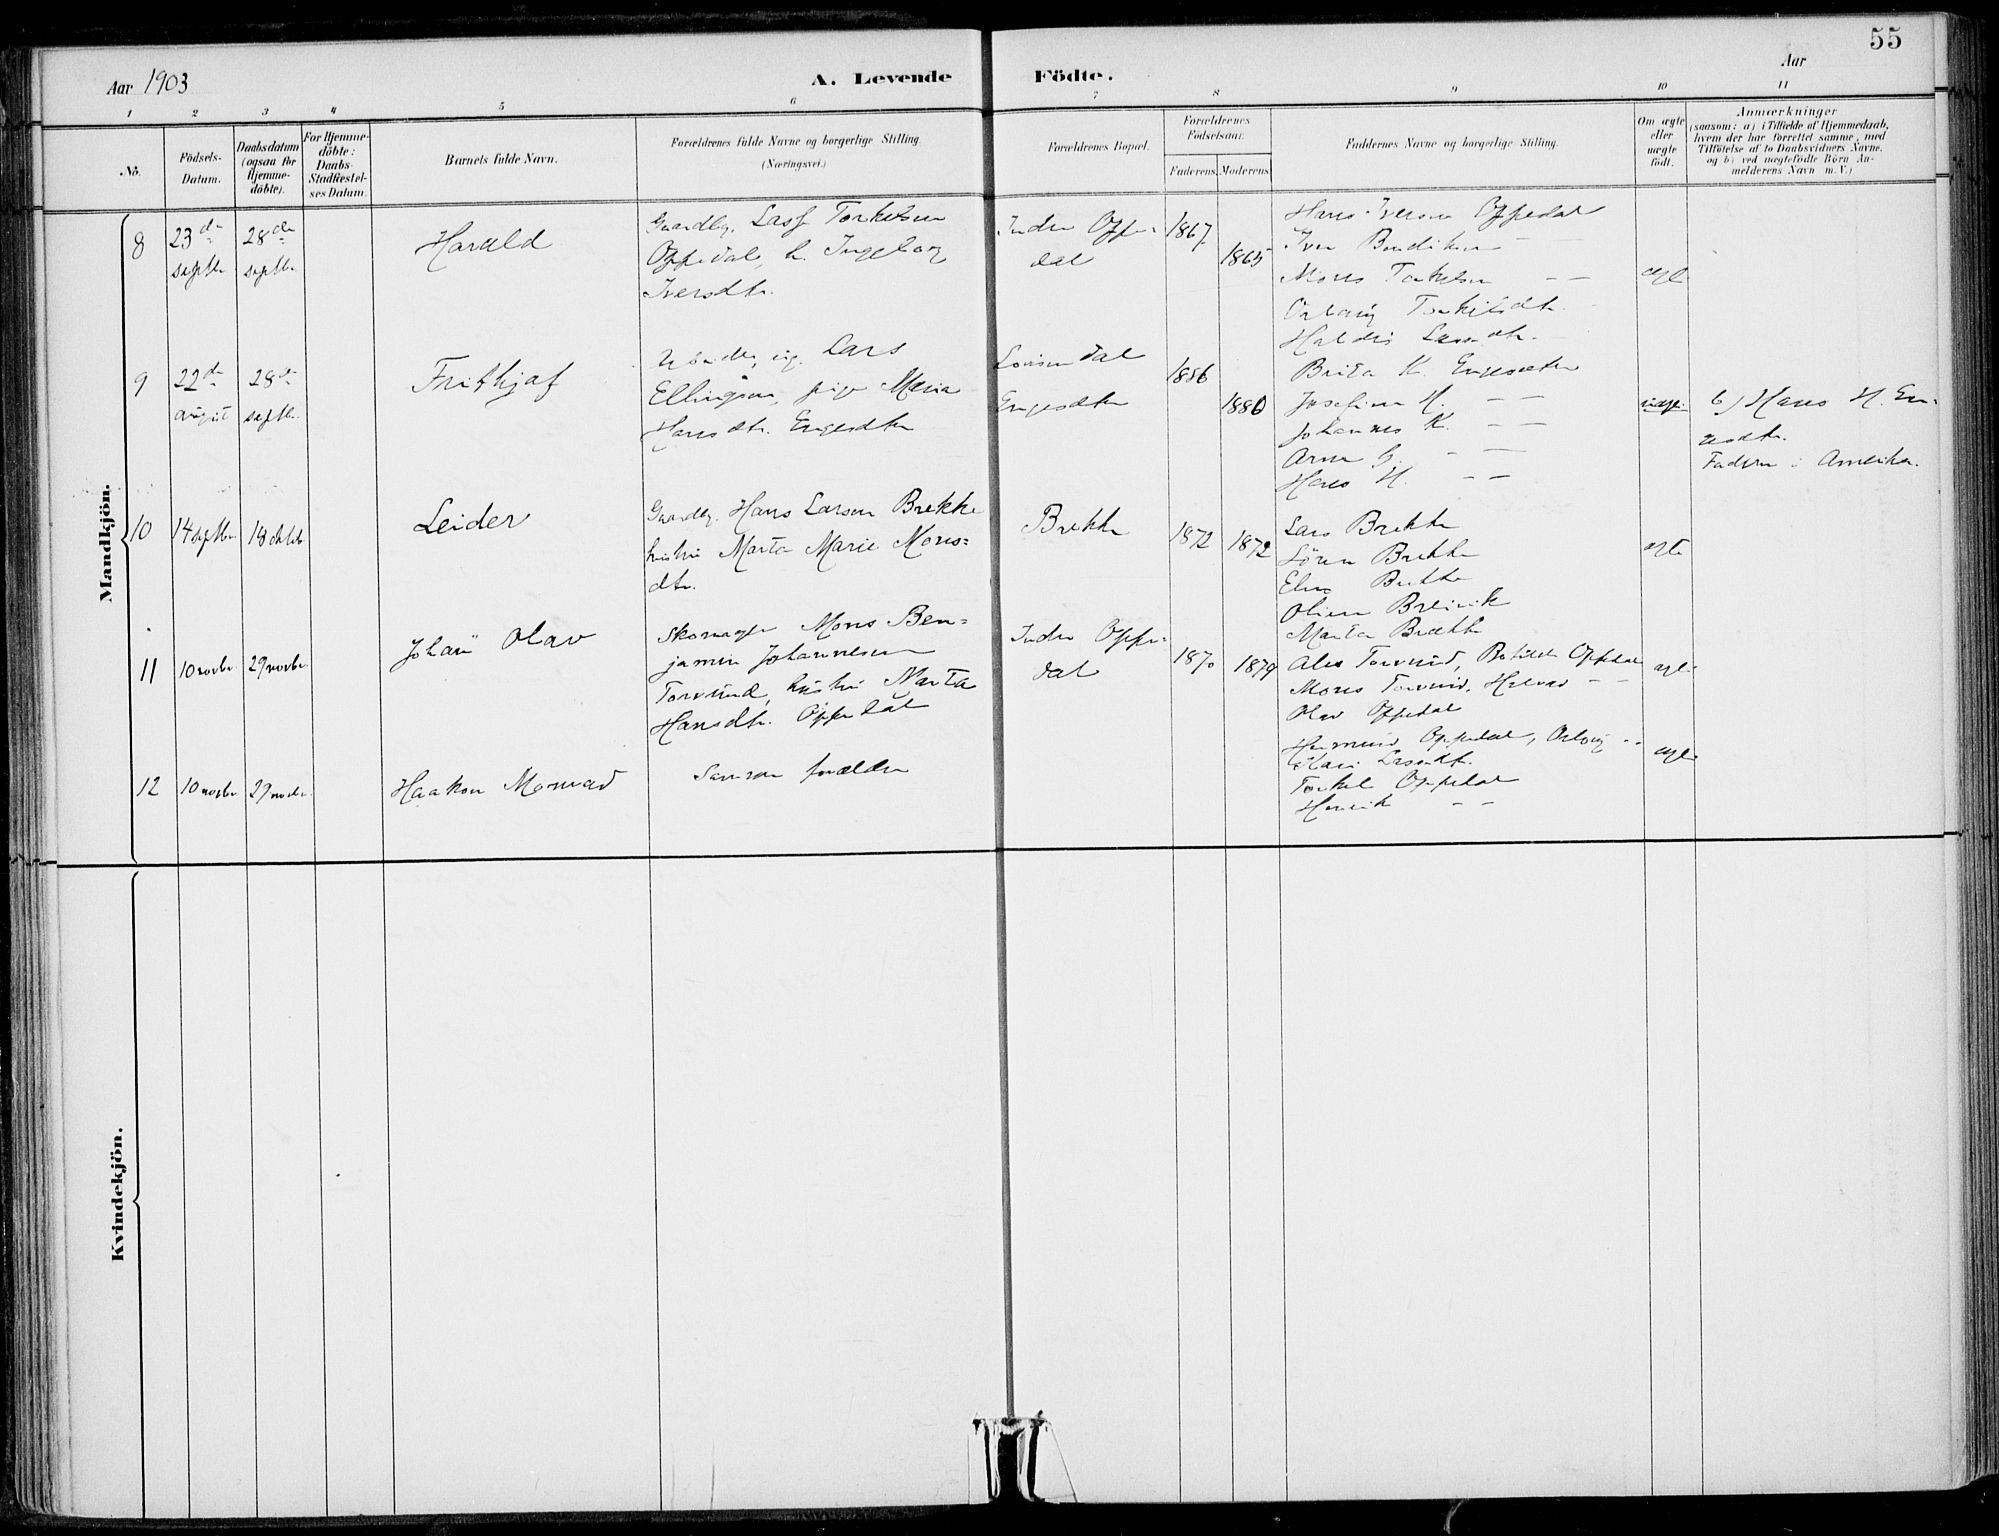 55
Aar 1903
A. Levende Födte.
Aar
1 2 3 4 5 6 7 8 9 10 11
No.
Födsels-
Datum.
Daabsdatum
(ogsaa for
Hjemme-
döbte).
For Hjemme-
döbte:
Daabs-
Stadfæstel-
ses Datum.
Barnets fulde Navn.
Forældrenes fulde Navne og borgerlige Stilling.
(Næringsvei.)
Forældrenes Bopæl.
Forældrenes
Födselsaar.
Faderens. Moderens.
Faddernes Navne og borgerlige Stilling.
Om ægte
eller
uægte
født.
Anmærkninger
(saasom: a) i Tilfælde af Hjemmedaab,
hvem der har forrettet samme, med
Tilföielse af to Daabsvidners Navne.
og b) ved uægtefödte Börn An-
melderens Navn m. V.)
Mandkjön.
8
23de
septbr.
28de
septbr.
Harald
Gaardbr. Lasse Torkelsen
Oppedal, h. Ingeborg
Iversdtr.
Indre Oppe-
dal
1867
1865
Hans Iversen Oppedal
Iver Bendiksen —
Mons Torkelsen — —
Torkilsdtr.
Larsdtr. —
9
22de
august
28de
septbr.
Frithjof
Lars
Ellingsen, pige Maria
Hansdtr. Engesæter
Engesæter
1886
1880
Brita K. Engesæter
Josefine H. — —
Johannes K. — —
Arne G. — —
Hans H. — —
b) Hans H. En-
Faderen i Amerika.
10
14 septbr.
18 oktob
Leider
Gaardbr. Hans Larsen Brekke
hustru Marta Marie Mons=
dtr.
Brekke
1872
1872
Lars Brekke
Sören Brekke
Brekke
Oline Breivik
Marta Brekke
ægte
11
10 novbr.
29 novbr.
Johan Olav
Skomager Mons Ben=
jamin Johannesen
Torvund, hustru Marta
Hansdtr. Oppedal
Indre Oppe-
dal
1870
1879
Torvund, Oppedal
Mons Torvund, — —
Olav Oppedal
12
10 novbr.
29 novbr.
Haakon Monrad
Samme forældre
Oppedal,
Torkel Oppedal
Henrik — —
Kvindekjön.